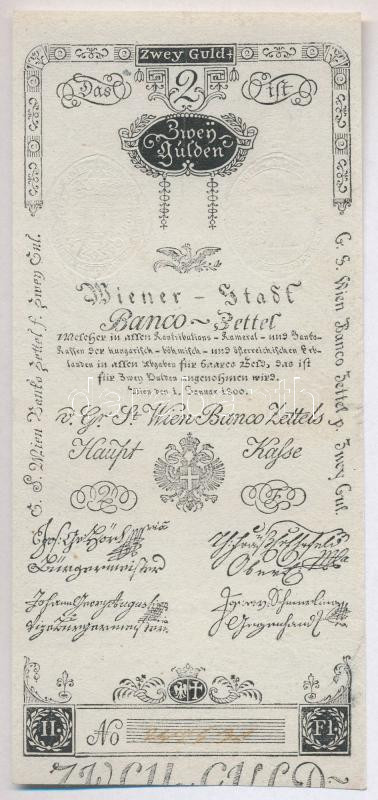 Zwey Guld
Das 2 ist
Zwey
Gulden
Wiener - Stadt
Banco ~ Zettel
Welcher in allen Kontributions - Kameral - und Banko-
Kassen der hungarisch - böhmisch - und österreichischen Erb-
landen in allen Abgaben für baares Geld, das ist
für Zwey Gulden angenohmen wird.
Wien den 1. Januar 1800.
v. Gr. St. Wien Banco Zettels
Haupt Kasse
2 F
Bürgermeister
Johann Georg August
Vizebürgermeister
II. No Fl
G. S. Wien Banco Zettel f. Zwey Gul.
G. S. Wien Banco Zettel f. Zwey Gul.
darabanth